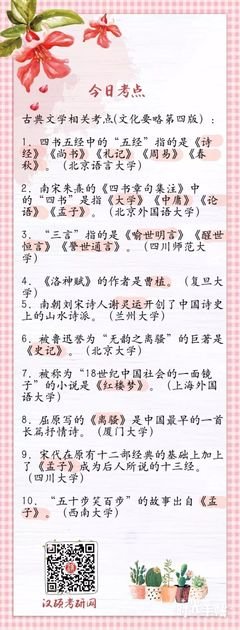 今日考点
古典文学相关考点(文化要略第四版）：
1．四书五经中的“五经”指的是《诗
经》《尚书》《礼记》《周易》《春
秋》。（北京语言大学）
2．南宋朱熹的《四书章句集注》中
的“四书”是指《大学》《中庸》《论
语》《孟子》。（北京外国语大学）
3．“三言”指的是《喻世明言》《醒世
恒言》《警世通言》。（四川师范大
学）
4．《洛神赋》的作者是曹植。（复旦大
学）
5．南朝刘宋诗人谢灵运开创了中国诗史
上的山水诗派。（兰州大学）
6．被鲁迅誉为“无韵之离骚”的巨著是
《史记》。（北京大学）
7．被称为“18世纪中国社会的一面镜
子”的小说是《红楼梦》。（上海外国
语大学）
8．屈原写的《离骚》是中国最早的一首
长篇抒情诗。（厦门大学）
9．宋代在原有十二部经典的基础上加上
了《孟子》成为后人所说的十三经。
（四川大学）
10．“五十步笑百步”的故事出自《孟
子》。（西南大学）
汉硕考研网